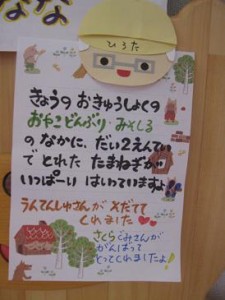 なな
ひろた
きょうの おきゅうしょくの
おやこどんぶり・みそしる
の なかに、だい2えんてい
で とれた たまねぎが
いっぱーい はいっていますよ!
うんてんしゅさんが そだてて
くれました
さくらぐみさんが
がんばって
とってくれましたよ!